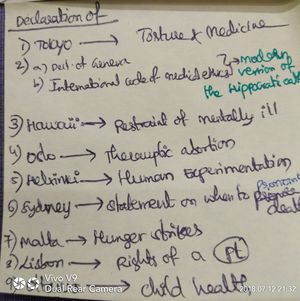 Declaration of
1) Tokyo → Torture & Medicine
2) a) Decl. of Geneva
b) International code of medical ethics } → modern version of the Hippocratic oath
3) Hawaii → Restraint of mentally ill
4) Oslo → Therapeutic abortion
5) Helsinki → Human Experimentation
6) Sydney → statement on when to death
7) Malta → Hunger strikes
8) Lisbon → Rights of a pt
9) → child health
Vivo V9
Dual Rear Camera
2018.07.12 21:32